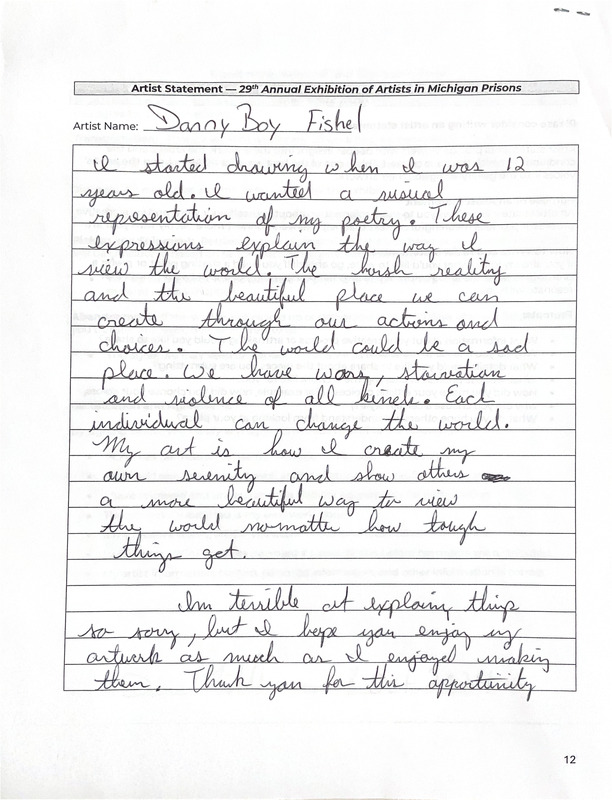 Artist Statement — 29th Annual Exhibition of Artists in Michigan Prisons
Artist Name: Danny Boy Fishel
I started drawing when I was 12
years old. I wanted a visual
representation of my poetry. These
expressions explain the way I
view the world. The harsh reality
and the beautiful place we can
create through our actions and
choices. The world could be a sad
place. We have wars, starvation
and violence of all kinds. Each
individual can change the world.
My art is how I create my
own serenity and show others
a more beautiful way to view
the world nomatter how tough
things get.
Im terrible at explaing things
so sorry, but I hope you enjoy my
artwork as much as I enjoyed making
them. Thank you for this opportunity
12